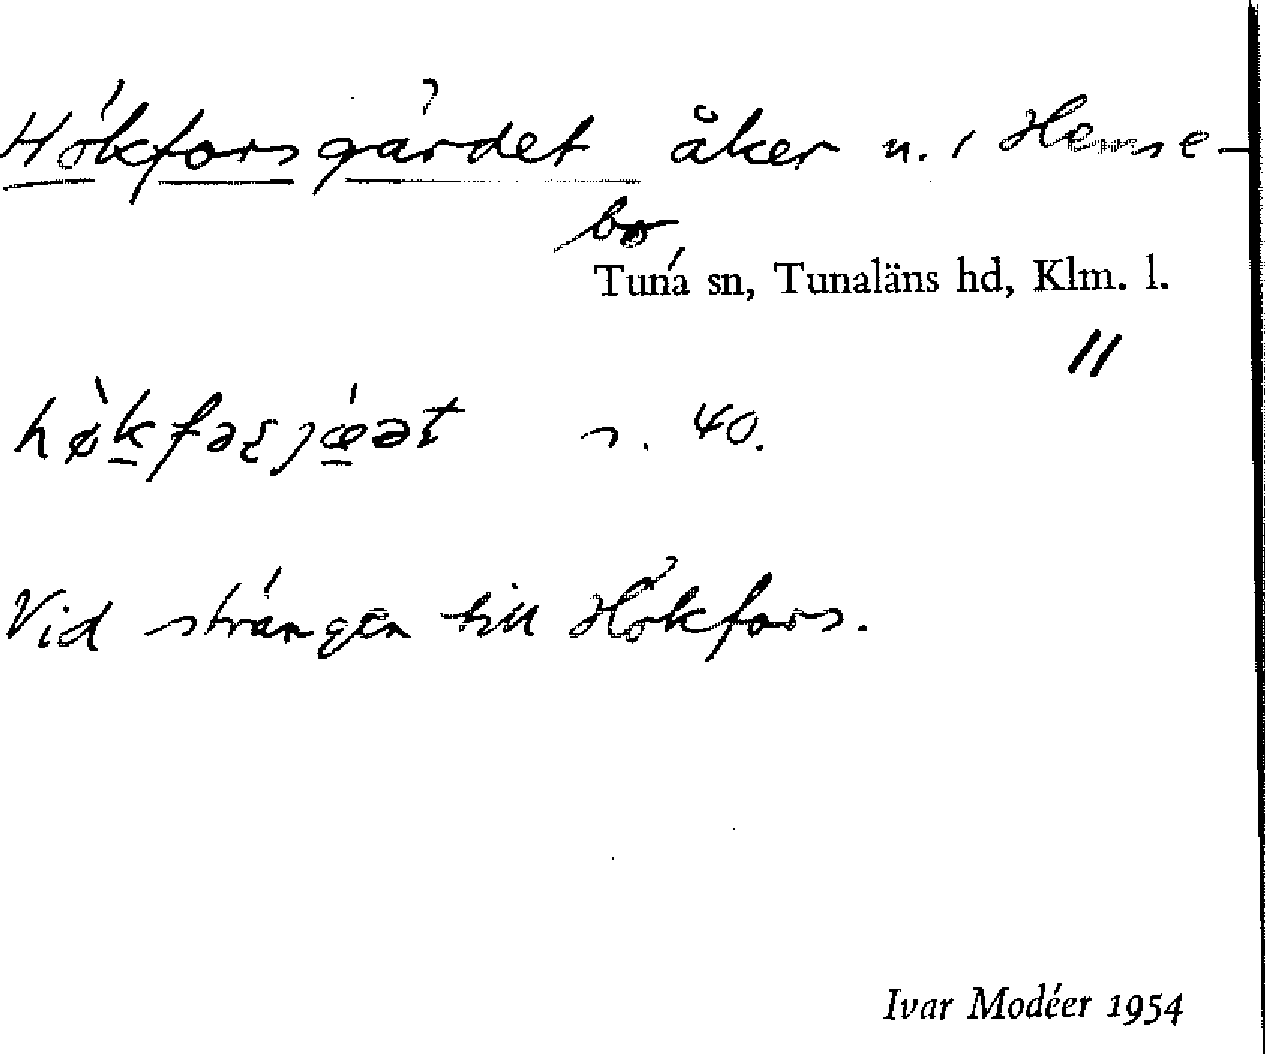 Hökforsgärdet åker n. i Hemse-
bo
Tuna sn, Tunaläns hd, Klm. l.
"
n. 40.
Vid strängen till Hökfors.
Ivar Modéer 1954